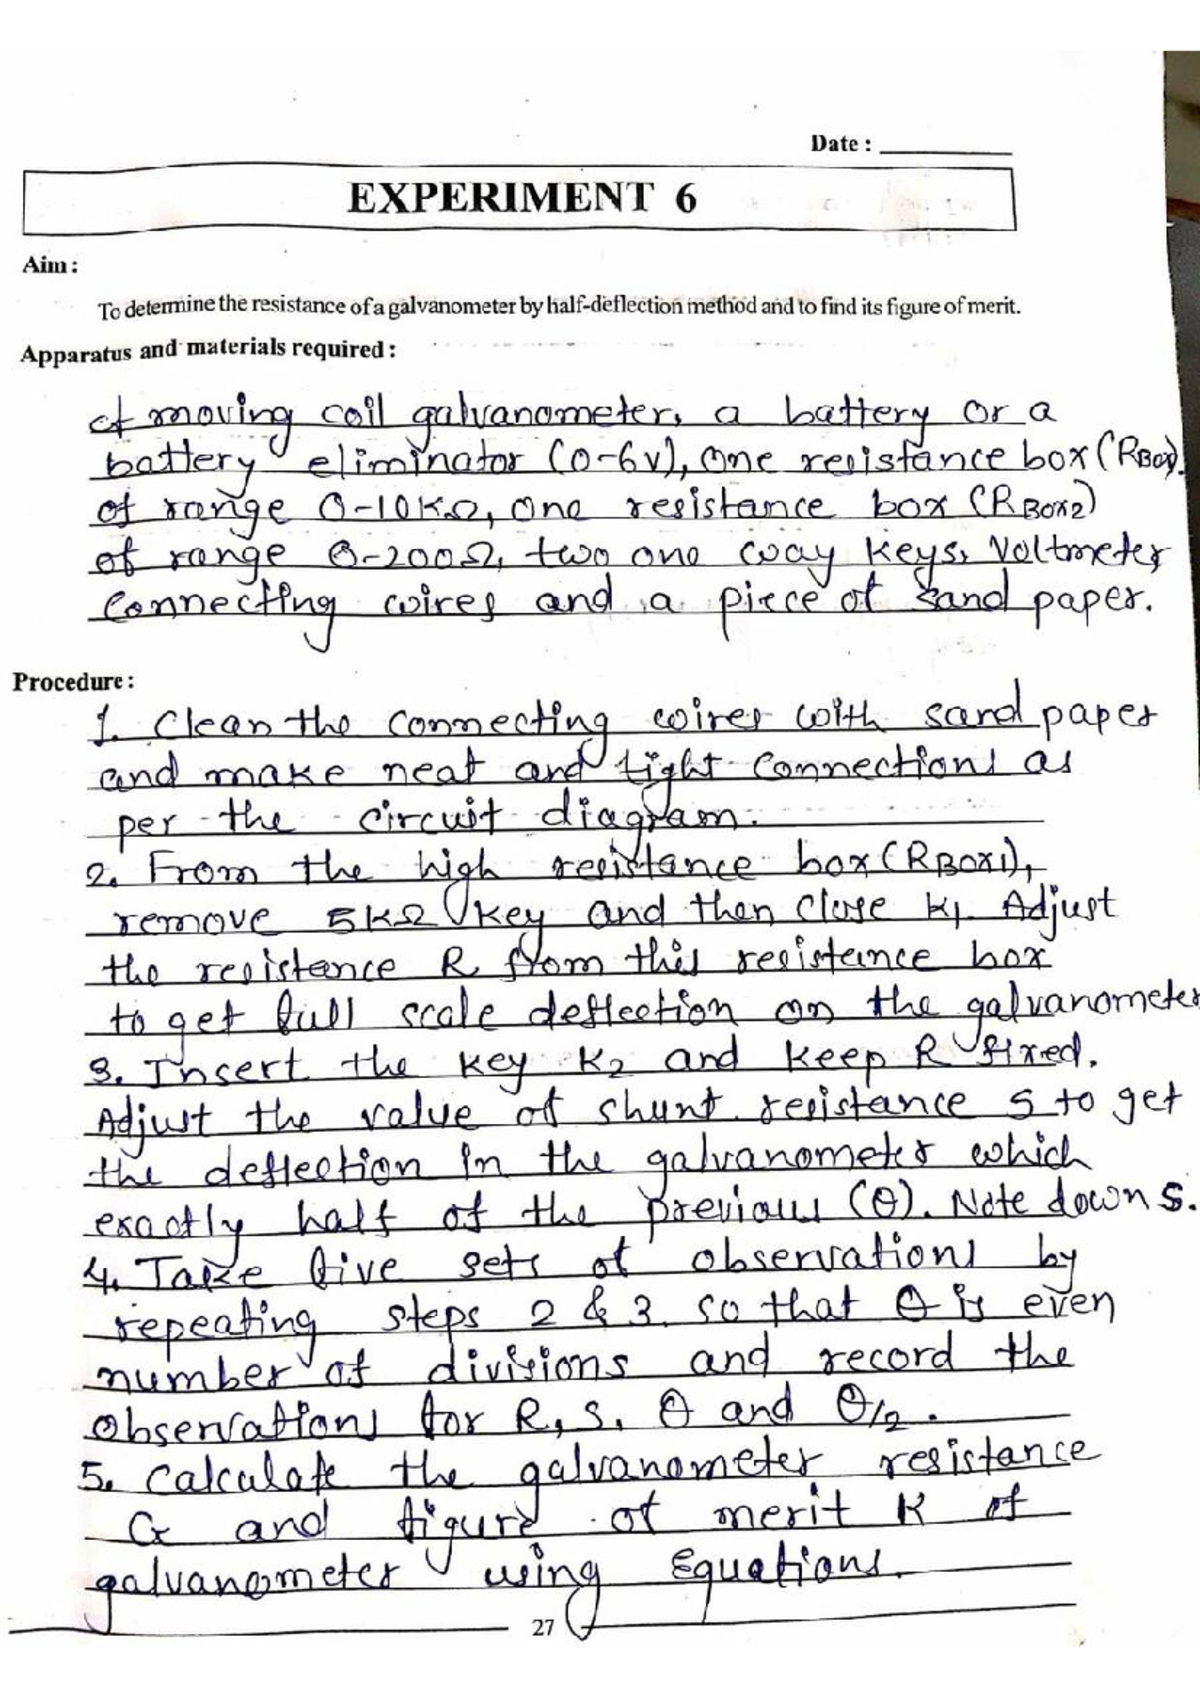 Date :
EXPERIMENT 6
Aim :
To determine the resistance of a galvanometer by half-deflection method and to find its figure of merit.
Apparatus and materials required :
of moving coil galvanometer, a battery or a
battery eliminator (0-6V), One resistance box (RBox).
of range 0-10KΩ, one resistance box (RBox2)
of range 0-200Ω, two one way keys, Voltmeter
Connecting wires and a piece of sand paper.
Procedure :
1. Clean the connecting wires with sand paper
and make neat and tight connections as
per the circuit diagram.
2. From the high resistance box (RBOX1),
remove 5KΩ key and then close K1. Adjust
the resistance R from this resistance box
to get full scale deflection on the galvanometer
3. Insert the key K2 and keep R fixed.
Adjust the value of shunt resistance S to get
the deflection in the galvanometer which
exactly half of the previous (θ). Note down S.
4. Take five sets of observations by
repeating steps 2 & 3 so that θ is even
number of divisions and record the
observations for R, S, θ and θ/2.
5. Calculate the galvanometer resistance
G and figure of merit K of
galvanometer using Equations.
27